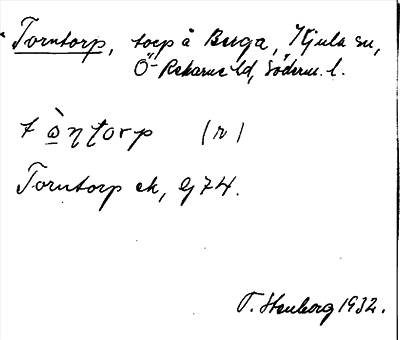 Torntorp, torp å Berga, Kjula sn,
Ö-Rekarne hd, Söderm. l.
tò̱ŋtorp (r)
Torntorp ek, G 74.
T. Stenborg 1932.